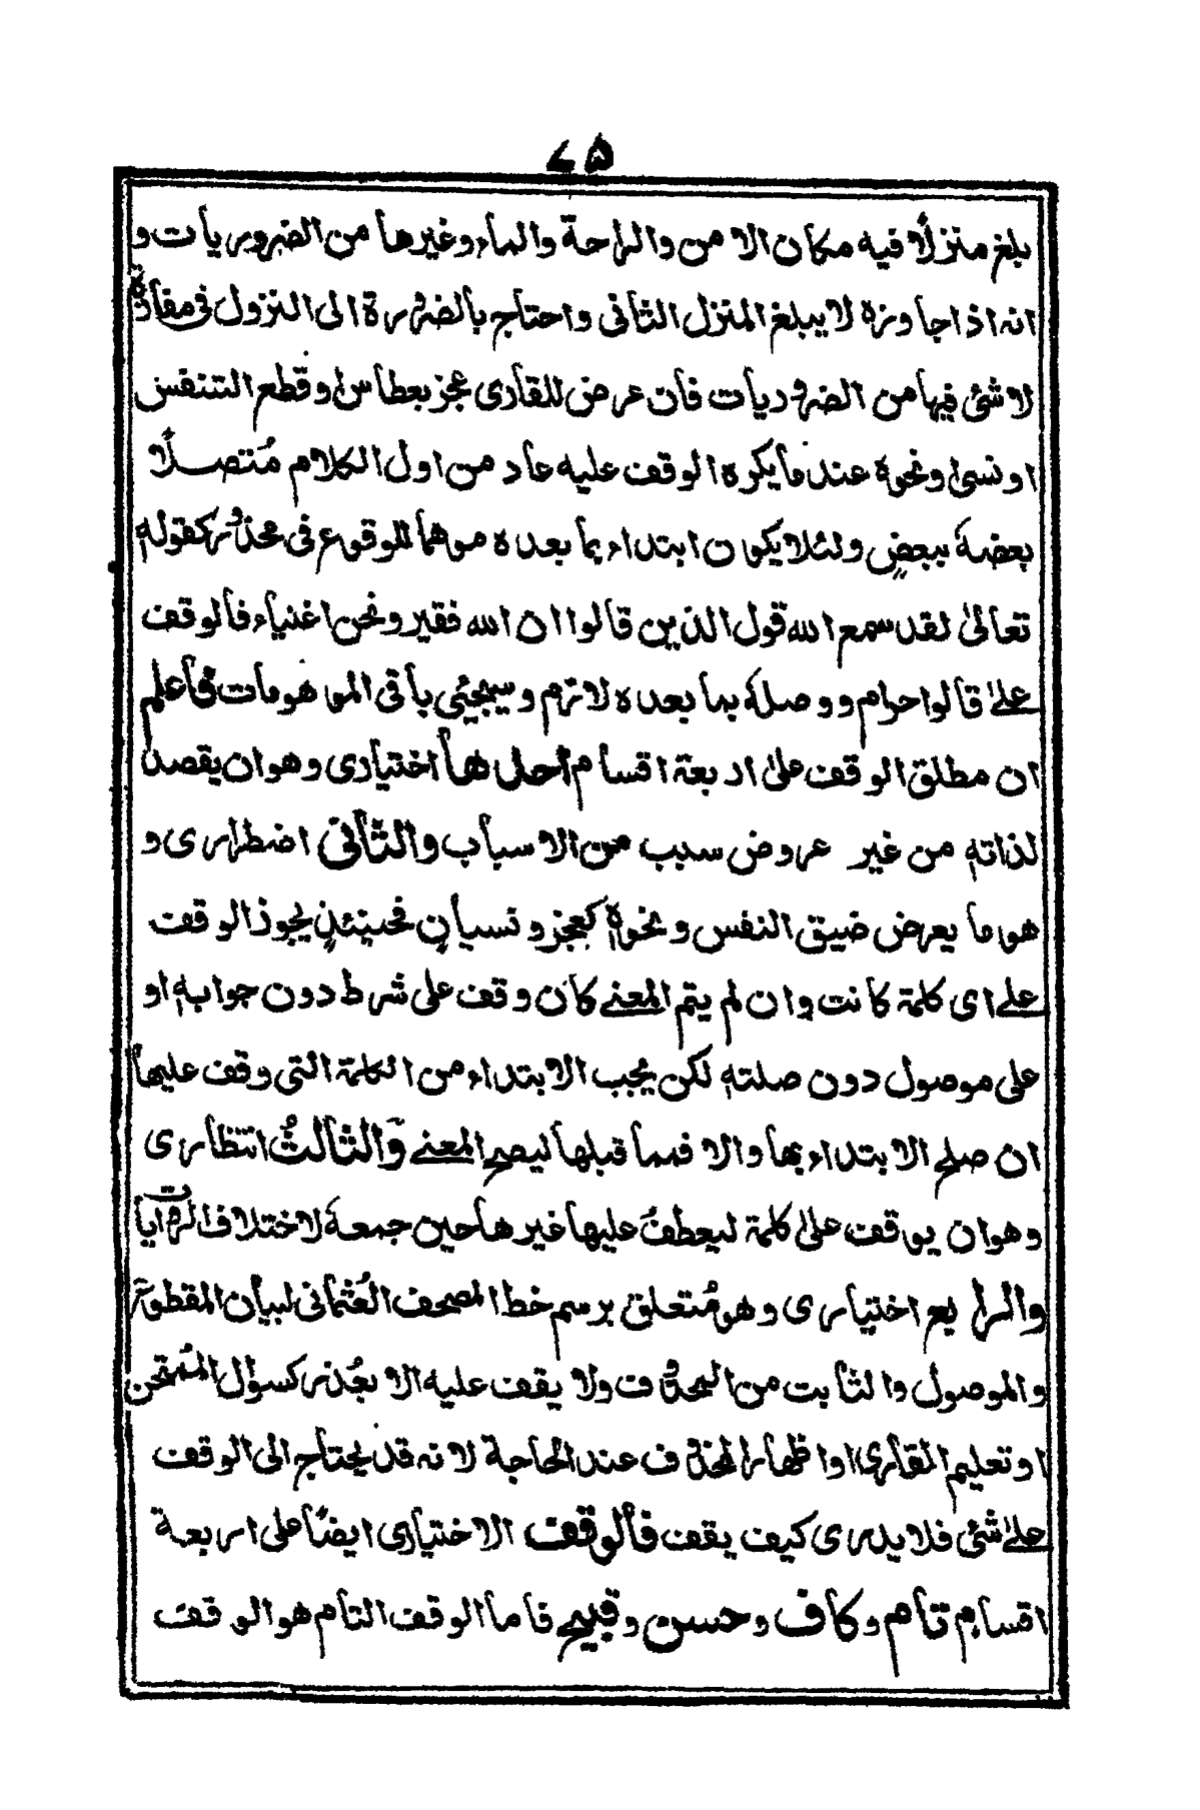 ٧٥
بلغ منزلًا فيه مكان الامن والراحة والماء وغيرها من الضروريات و
انه اذا جاوزه لا يبلغ المنزل الثانى واحتاج بالضرورة الى النزول فى مفازة
لا شئ فيها من الضروريات فان عرض للقارى عجز بعطاس او قطع التنفس
او نسى او نحوه عند ما يكره الوقف عليه عاد من اول الكلام مُتصلًا
بعضهٗ ببعضٍ ولئلا يكون ابتداءه بما بعده موهما للوقوع فى محذور كقولهٖ
تعالىٰ لقد سمع الله قول الذين قالوا ان الله فقير ونحن اغنياء فالوقف
علىٰ قالوا حرام ووصلهٗ بما بعده لازم وسيجيئ باقى الموهومات فاعلم
ان مطلق الوقف علىٰ اربعة اقسام احدها اختيارى وهو ان يقصد
لذاتهٖ من غير عروض سبب من الاسباب والثانى اضطرارى و
هو ما يعرض ضيق النفس ونحوهٖ كعجز ونسيانٍ فحينئذٍ يجوز الوقف
على اى كلمة كانت وان لم يتم المعنے كان وقف على شرط دون جوابهٖ او
على موصول دون صلتهٖ لكن يجب الابتداء من الكلمة التى وقف عليها
ان صلح الابتداء بها والا فمما قبلها ليصح المعنے وَالثالثُ انتظارى
وهو ان يوقف علىٰ كلمة ليعطفَ عليها غيرها حين جمعهٗ لاختلاف الروايات
والرابع اختيارى وهو مُتعلق برسم خط المصحف العُثمانى لبيان المقطوع
والموصول والثابت من المحذوف ولا يقف عليه الا بعُذر كسؤال المُمتحن
او تعليم القارى او اظهار المحذوف عند الحاجة لانه قد يحتاج الى الوقف
علىٰ شئ فلا يدرى كيف يقف فالوقف الاختيارى ايضًا على اربعة
اقسام تام وكاف وحسن وقبيح فاما الوقف التام هو الوقف